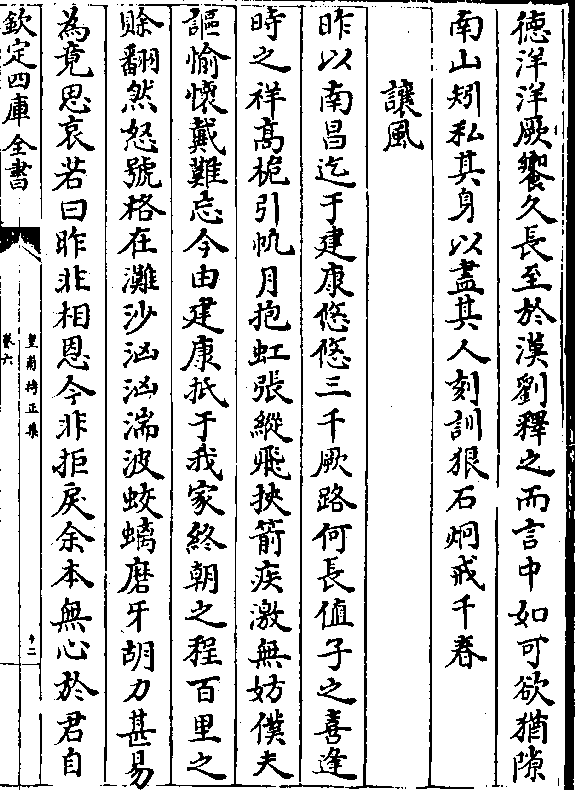 德洋洋厥饗久長至於漢劉釋之而言中如可欲猶隙
南山矧私其身以盡其人刻訓狠石炯戒千春
讓風
昨以南昌迄于建康悠悠三千厥路何長値子之喜逢
時之祥高桅引帆月抱虹張縱飛挾箭疾激無妨僕夫
謳愉懷戴難忘今由建康抵于我家終朝之程百里之
賖翻然怒號格在灘沙洶洶湍波蛟螭磨牙胡力甚易
為竟思哀若曰昨非相恩今非拒戾余本無心於君自
欽定四庫全書
皇甫持正集
卷六
十二